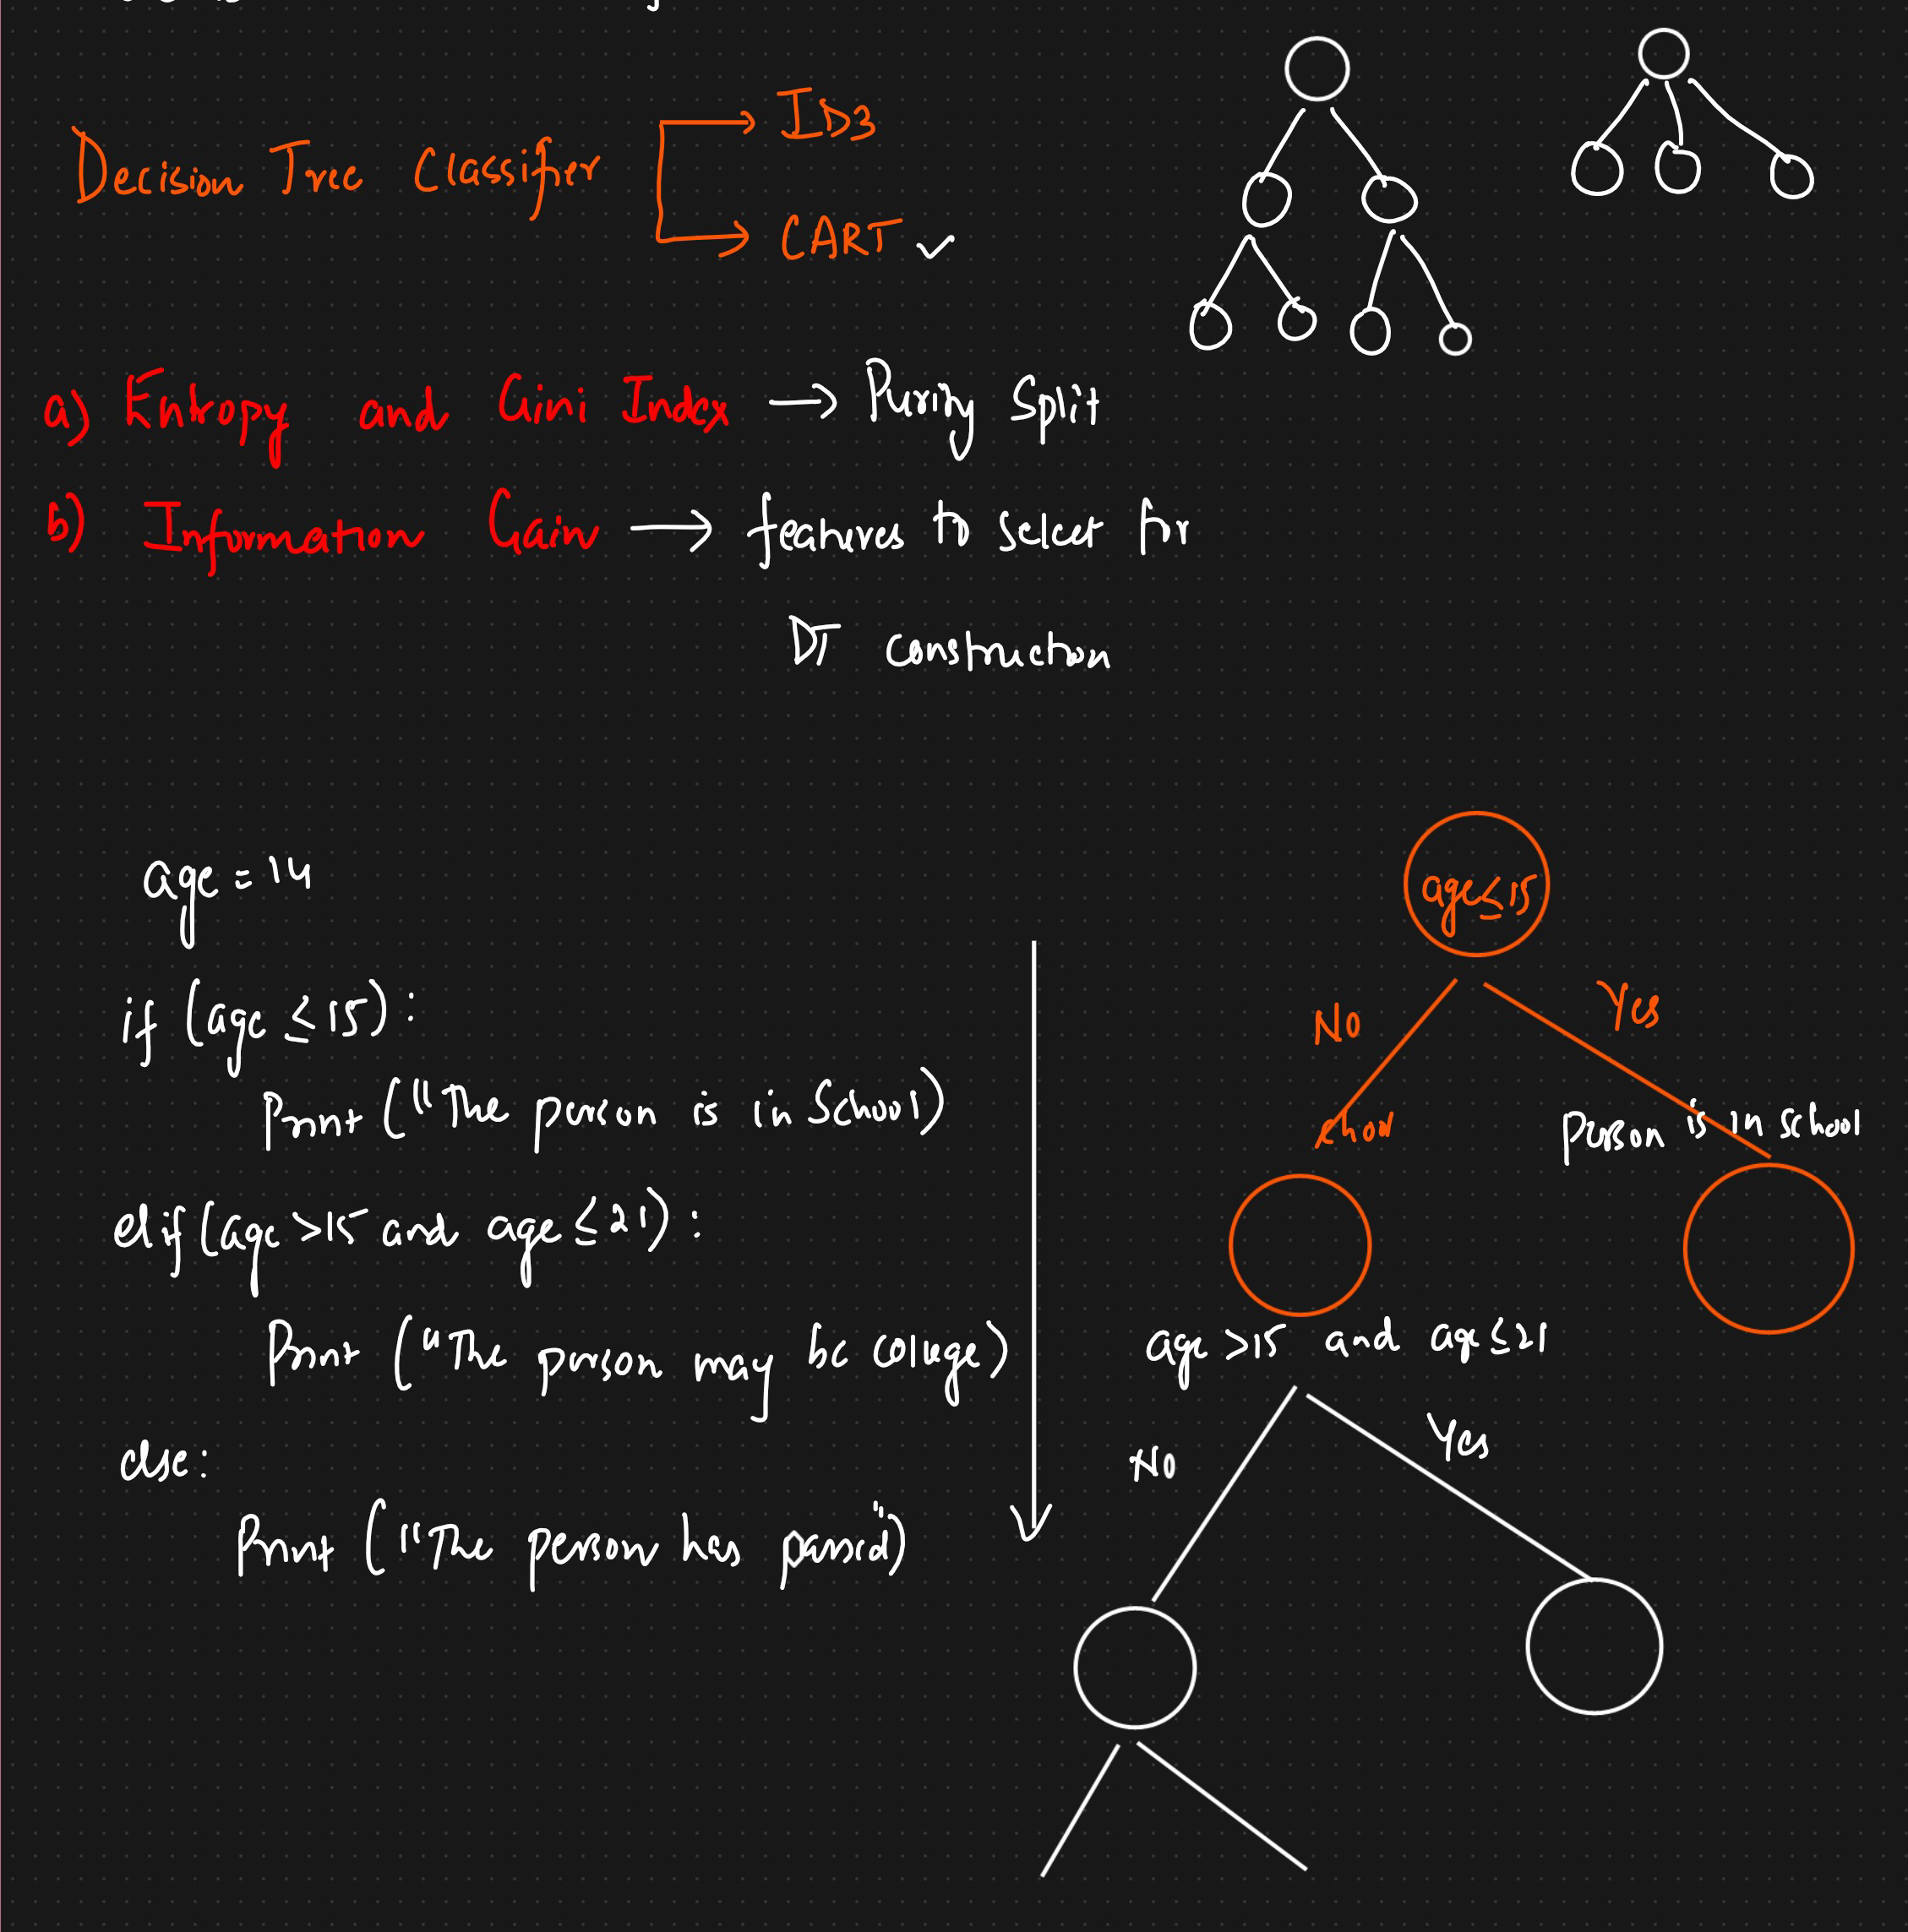 Decision Tree Classifier
ID3
CART ✓
a) Entropy and Gini Index → Purity Split
b) Information Gain → features to select for
DT construction
age = 14
if (age ≤ 15):
Print ("The person is in School)
elif (age >15 and age ≤ 21):
Print ("The person may be college)
else:
Print ("The person has passed")
age ≤ 15
No
Yes
Person is in school
age >15 and age ≤ 21
No
Yes